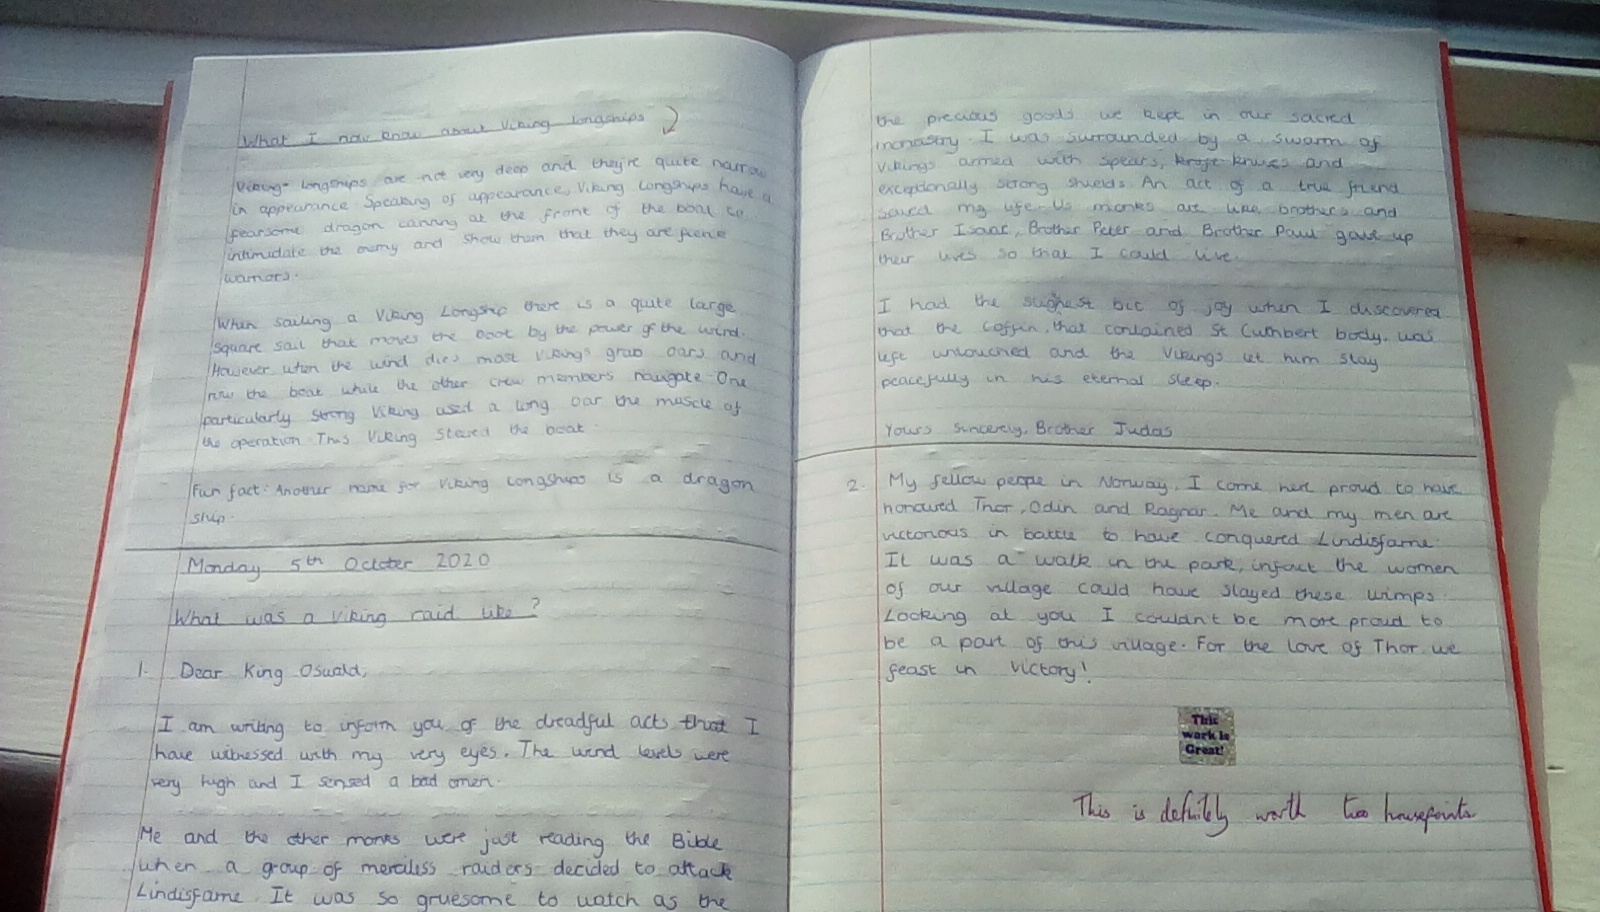 What I now know about Viking longships
Viking longships are not very deep and they're quite narrow
in appearance. Speaking of appearance, Viking Longships have a
fearsome dragon carving at the front of the boat to
intimidate the enemy and show them that they are fierce
warriors.
When sailing a Viking Longship there is a quite large
square sail that moves the boat by the power of the wind.
However when the wind dies most Vikings grab oars and
row the boat while the other crew members navigate. One
particularly strong Viking used a long oar the muscle of
the operation. This Viking steered the boat.
Fun fact: Another name for Viking Longships is a dragon
ship.
Monday 5th October 2020
What was a Viking raid like?
1. Dear King Oswald,
I am writing to inform you of the dreadful acts that I
have witnessed with my very eyes. The wind levels were
very high and I sensed a bad omen.
Me and the other monks were just reading the Bible
when a group of merciless raiders decided to attack
Lindisfarne. It was so gruesome to watch as the
the precious goods we kept in our sacred
monastry. I was surrounded by a swarm of
Vikings armed with spears, knives and
exceptionally strong shields. An act of a true friend
saved my life. Us monks are like brothers and
Brother Isaac, Brother Peter and Brother Paul gave up
their lives so that I could live.
I had the slighest bit of joy when I discovered
that the coffin, that contained St Cuthbert body, was
left untouched and the Vikings let him stay
peacefully in his eternal sleep.
Yours sincerely, Brother Judas
2. My fellow people in Norway, I come here proud to have
honoured Thor, Odin and Ragnar. Me and my men are
victorious in battle to have conquered Lindisfarne.
It was a walk in the park, infact the women
of our village could have slayed these wimps.
Looking at you I couldn't be more proud to
be a part of this village. For the love of Thor we
feast in victory!
This
work is
Great!
This is definitely worth two housepoints